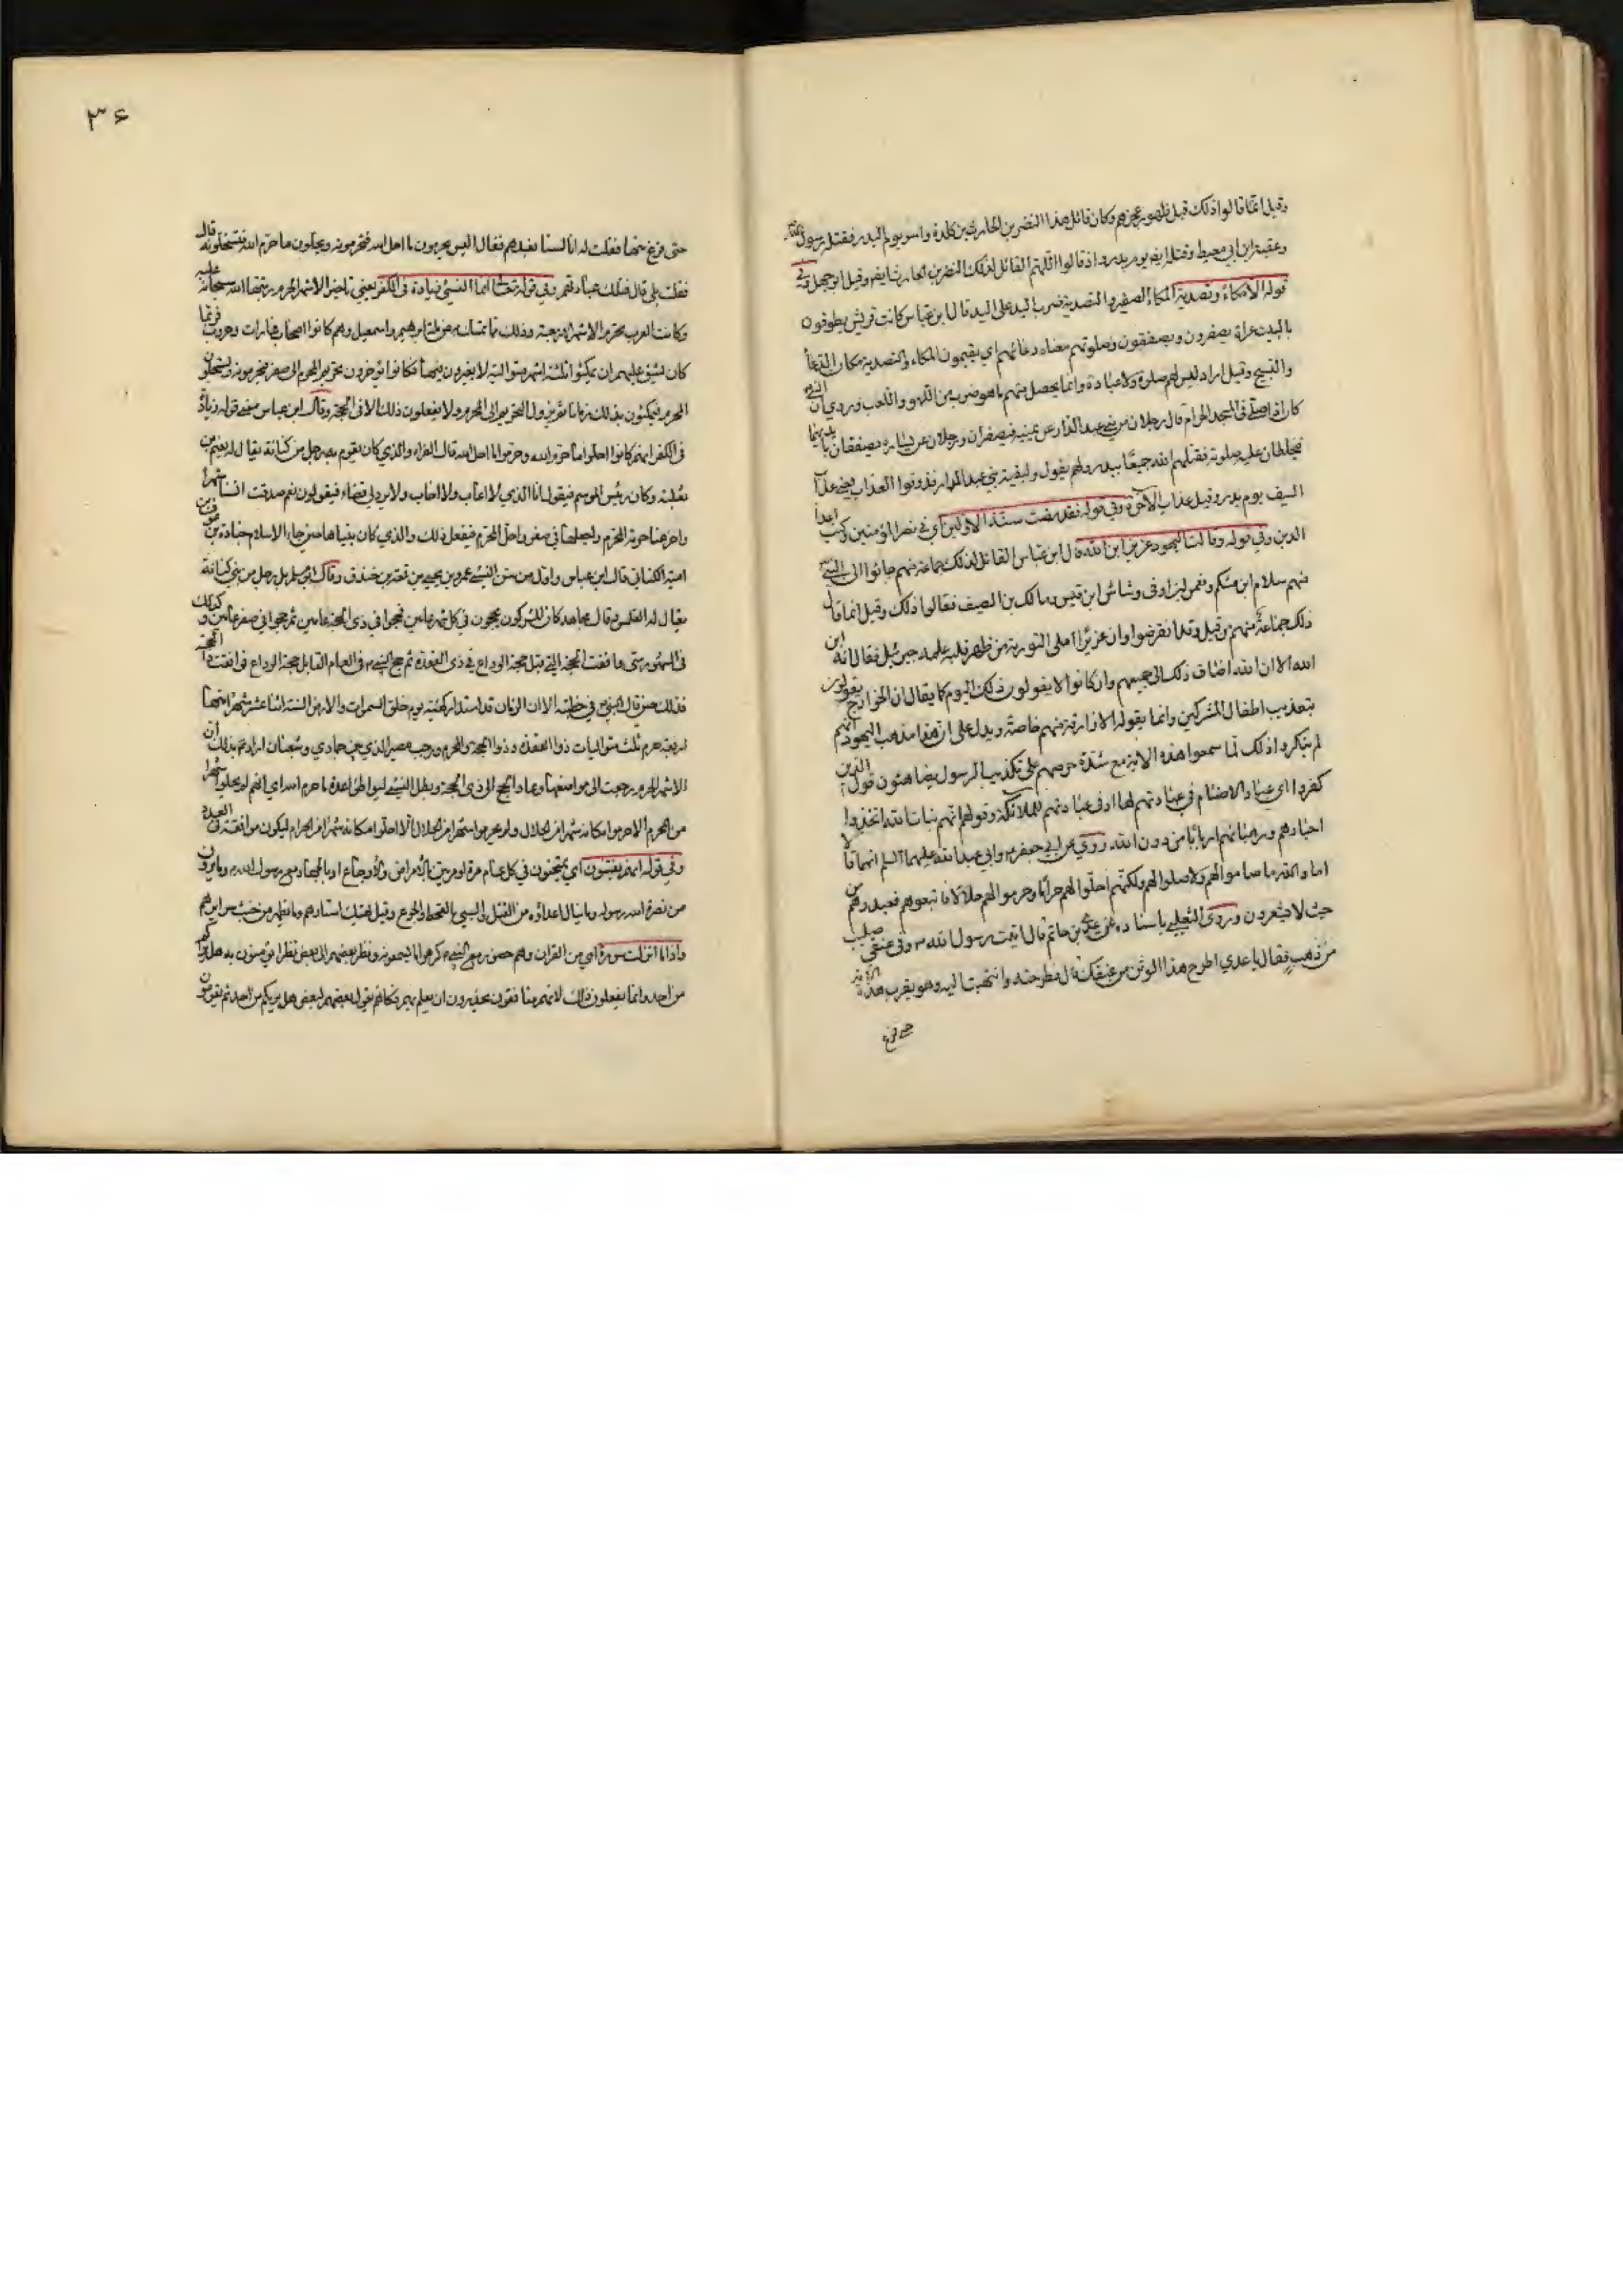 وقيل انما قالوا ذلك قبل ظهور عجزهم وكان قائل هذا النضر بن الحارث بن كلدة واسر يوم البدر فقتله رسول الله
وعقبة بن ابي معيط وقتله ايضا يوم بدر واذ قالوا اللهم القائل لذلك النضر بن الحارث ايضا وقيل ابو جهل وفي
قوله الا مكاء وتصدية المكاء الصفير والتصدية ضرب اليد على اليد قال ابن عباس كانت قريش يطوفون
بالبيت عراة يصفرون ويصفقون وصلوتهم معناه دعائهم اي يقيمون المكاء والتصدية مكان الدعاء
والتسبيح وقيل اراد ليس لهم صلوة ولا عبادة وانما يحصل منهم ما هو ضرب من اللهو واللعب وروي ان النبي
كان اذا صلى في المسجد الحرام قال رجلان من بني عبد الدار عن يمينه فيصفران ورجلان عن يساره يصفقان بايديهما
فيخلطان عليه صلوته فقتلهم الله جميعا ببدر ولهم يقول ولبقية بني عبد الدار فذوقوا العذاب يعني عذاب
السيف يوم بدر وقيل عذاب الآخرة وفي قوله فقد مضت سنة الاولين اي في نصر المؤمنين وكبت اعداء
الدين وفي قوله وقالت اليهود عزير ابن الله قال ابن عباس القائل لذلك جماعة منهم جاؤا الى النبي
منهم سلام ابن مشكم ونعمن ابن اوفى وشاس ابن قيس ومالك بن الصيف فقالوا ذلك وقيل انما قال
ذلك جماعة منهم من قبل وقد انقرضوا وان عزيرا املى التورية من ظهر قلبه علمه جبرئيل فقالوا انه ابن
الله الا ان الله اضاف ذلك الى جميعهم وان كانوا لا يقولون ذلك اليوم كما يقال ان الخوارج يقولون
بتعذيب اطفال المشركين وانما يقوله الازارقة منهم خاصة ويدل على ان هذا مذهب اليهود انهم
لم ينكروا ذلك لما سمعوا هذه الاية مع شدة حرصهم على تكذيب الرسول يضاهئون قول الذين
كفروا اي عباد الاصنام في عبادتهم لها او في عبادتهم للملائكة وقولهم انهم بنات الله اتخذوا
احبارهم ورهبانهم اربابا من دون الله روي عن ابي جعفر وابي عبد الله عليهما السلم انهما قالا
اما والله ما صاموا لهم ولا صلوا لهم ولكنهم احلوا لهم حراما وحرموا لهم حلالا فاتبعوهم فعبدوهم من
حيث لا يشعرون وروى الثعلبي باسناده عن عدي بن حاتم قال اتيت رسول الله ص وفي عنقي صليب
من ذهب فقال يا عدي اطرح هذا الوثن من عنقك قال فطرحته وانتهيت اليه وهو يقرء هذه الآية
حتى فرغ
٣٤
حتى فرغ منها فقلت له انا لسنا نعبدهم فقال اليس يحرمون ما احل الله فتحرمونه ويحلون ما حرم الله فتستحلونه قال
فقلت بلى قال فتلك عبادتهم وفي قوله تعالى انما النسيء زيادة في الكفر يعني تاخير الاشهر الحرم رتبها الله سبحانه عليه
وكانت العرب تحرم الاشهر الاربعة وذلك مما تمسكت به من ملة ابرهيم واسمعيل وهم كانوا اصحاب غارات وحروب فربما
كان يشق عليهم ان يمكثوا ثلثة اشهر متوالية لا يغزون فيها فكانوا يؤخرون تحريم المحرم الى صفر فيحرمونه ويستحلون
المحرم فيمكثون بذلك زمانا ثم يزول التحريم الى المحرم ولا يفعلون ذلك الا في ذي الحجة وقال ابن عباس معنى قوله زيادة
في الكفر انهم كانوا احلوا ما حرم الله وحرموا ما احل الله قال الفراء والذي كان يقوم به رجل من كنانة يقال له نعيم بن
ثعلبة وكان رئيس الموسم فيقول انا الذي لا اعاب ولا اخاب ولا يرد لي قضاء فيقولون نعم صدقت انسئنا شهرا
واخر عنا حرمة المحرم واجعلها في صفر واحل المحرم فيفعل ذلك والذي كان ينسأها حين جاء الاسلام جنادة بن عوف بن
امية الكناني قال ابن عباس واول من سن النسيء عمرو بن لحي بن قمعة بن خندف وقال ابو مسلم بل رجل من بني كنانة
يقال له القلمس وقال مجاهد كان المشركون يحجون في كل شهر عامين فحجوا في ذي الحجة عامين ثم حجوا في صفر عامين وكذلك
في الشهور حتى وافقت الحجة التي قبل حجة الوداع في ذي القعدة ثم حج النبي ص في العام القابل حجة الوداع فوافقت ذا الحجة
فذلك حين قال النبي ص في خطبته الا ان الزمان قد استدار كهيئته يوم خلق السموات والارض السنة اثنا عشر شهرا منها
اربعة حرم ثلث متواليات ذو القعدة وذو الحجة والمحرم ورجب مضر الذي بين جمادي وشعبان اراد ع بذلك ان
الاشهر الحرم رجعت الى مواضعها وعاد الحج الى ذي الحجة وبطل النسيء ليواطئوا عدة ما حرم الله اي انهم لم يحلوا شهرا
من الحرم الا حرموا مكانه شهرا من الحلال ولم يحرموا شهرا من الحلال الا احلوا مكانه شهرا من الحرام ليكون موافقة في العدد
وفي قوله انهم يفتنون اي يمتحنون في كل عام مرة او مرتين بالامراض والاوجاع او بالجهاد مع رسول الله ص وما يرون
من نصرة الله رسوله وما ينال اعداؤه من القتل والسبي والقحط والجوع وقيل بهتك استارهم وما يظهر من خبث سرائرهم
واذا ما انزلت سورة اي من القران وهم حضور مع النبي ص كرهوا ما يسمعونه ونظر بعضهم الى بعض نظرا يؤمنون به هل يراكم
من احد وانما يفعلون ذلك لانهم منافقون يحذرون ان يعلم بهم فكانهم يقول بعضهم لبعض هل يريكم من احد ثم يقومون